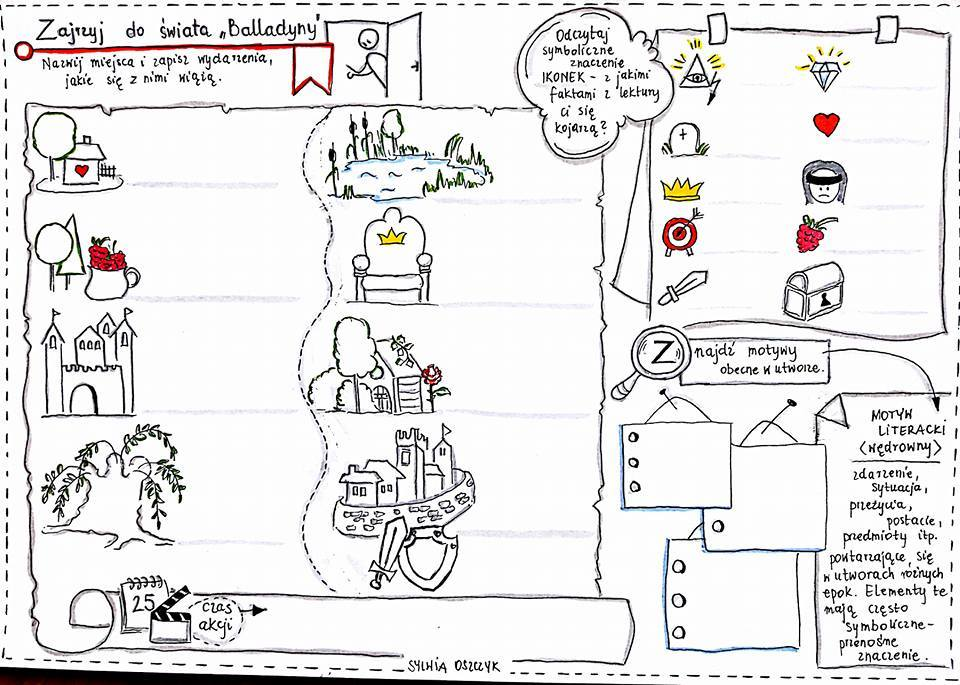 Zajrzyj do świata „Balladyny"
Nazwij miejsca i zapisz wydarzenia,
jakie się z nimi wiążą.
Odczytaj
symboliczne
znaczenie
IKONEK - z jakimi
faktami z lektury
ci się
kojarzą?
Znajdź motywy
obecne w utworze.
MOTYW
LITERACKI
(wędrowny)
zdarzenie,
sytuacja,
przeżycia,
postacie,
przedmioty itp.
powtarzające się
w utworach różnych
epok. Elementy te
mają często
symboliczne-
przenośne
znaczenie.
25
czas
akcji
SYLWIA OSZCZYK